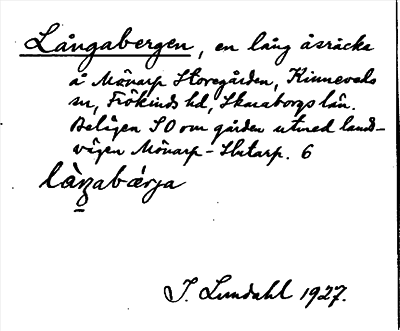 Långabergen, en lång åsräcka
å Mönarp Storegården, Kinneveds
sn, Frökinds hd, Skaraborgs län.
Belägen SO om gården utmed land-
vägen Mönarp - Slutarp. 6
I. Lundahl 1927.